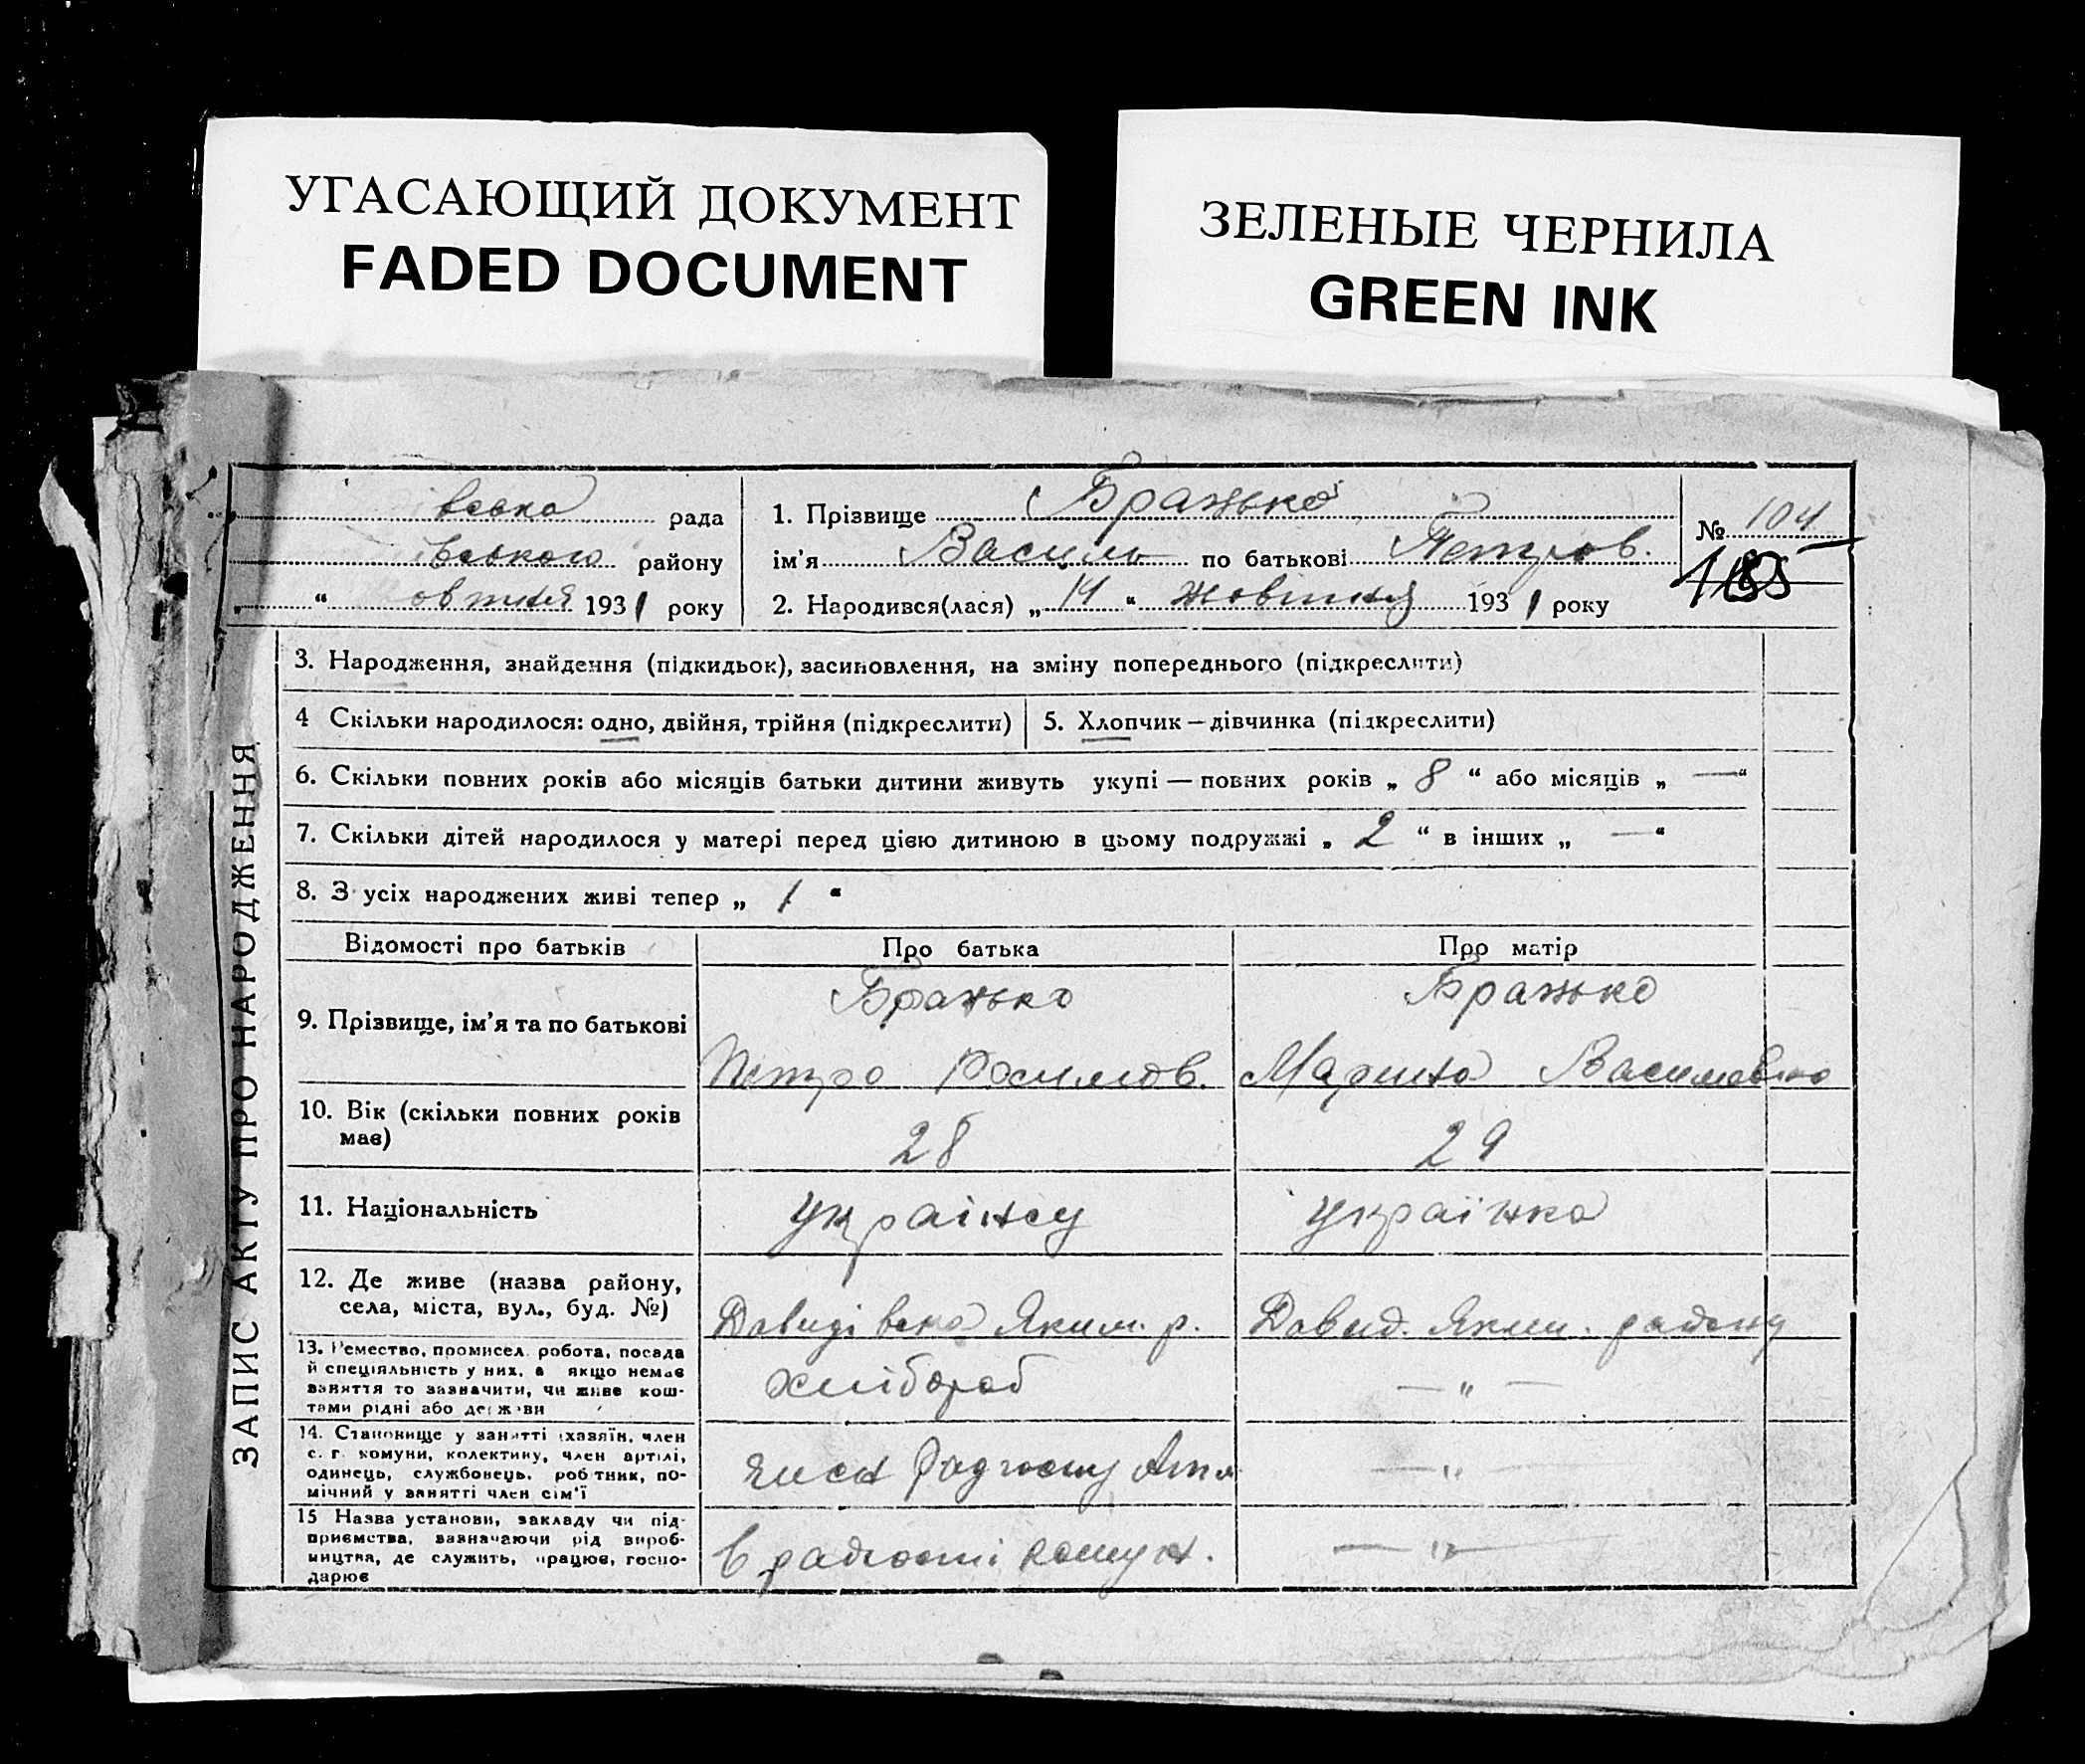 УГАСАЮЩИЙ ДОКУМЕНТ
FADED DOCUMENT
ЗЕЛЕНЫЕ ЧЕРНИЛА
GREEN INK
ЗАПИС АКТУ ПРО НАРОДЖЕННЯ
вська рада
вського району
„ “ овтня 1931 року
1. Прізвище Бражько
ім'я Василь по батькові Петров.
2. Народився(лася) „ 14 “ жовтня 1931 року
№ 104
185
3. Народження, знайдення (підкидьок), засиновлення, на зміну попереднього (підкреслити)
4 Скільки народилося: одно, двійня, трійня (підкреслити)
5. Хлопчик — дівчинка (підкреслити)
6. Скільки повних років або місяців батьки дитини живуть укупі — повних років „ 8 “ або місяців „ — “
7. Скільки дітей народилося у матері перед цією дитиною в цьому подружжі „ 2 “ в інших „ — “
8. З усіх народжених живі тепер „ 1 “
Відомості про батьків Про батька Про матір
9. Прізвище, ім'я та по батькові
Бражько
Петро
Бражько
Марина Василювна
10. Вік (скільки повних років має)
28
29
11. Національність
українец
українка
12. Де живе (назва району,
села, міста, вул., буд. №)
Давидівка Яким. р.
Давид. Яким. району
13. Ремество, промисел, робота, посада
й спеціяльність у них, а якщо немає
заняття то зазначити, чи живе кош-
тами рідні або держави
хлібороб
— " —
14. Становище у занятті (хазяїн, член
с. г. комуни, колективу, член артілі,
одинець, службовець, робітник, по-
мічний у занятті член сім'ї
член
— " —
15 Назва установи, закладу чи під-
приємства, зазначаючи рід вироб-
ництва, де служить, працює, госпо-
дарює
в
— " —